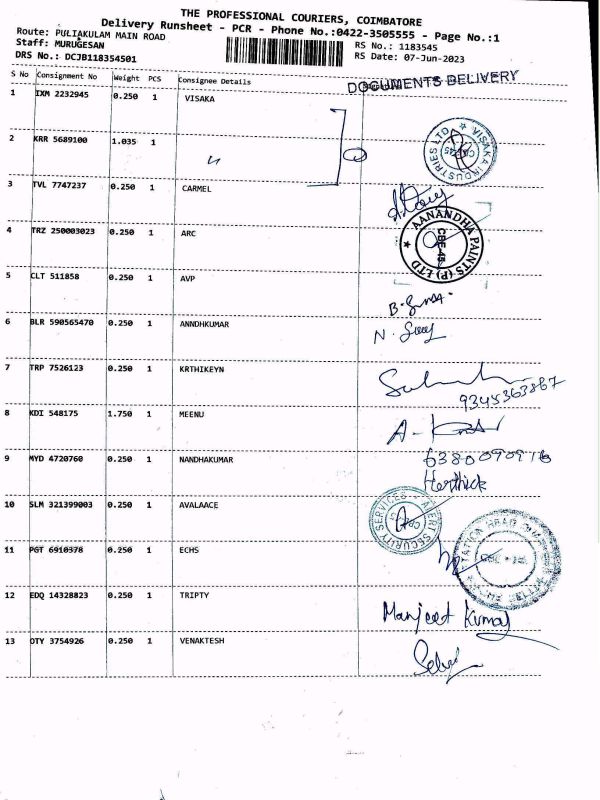 THE PROFESSIONAL COURIERS, COIMBATORE
Delivery Runsheet - PCR - Phone No.:0422-3505555 - Page No.:1
Route: PULIAKULAM MAIN ROAD
Staff: MURUGESAN
RS No.: 1183545
DRS No.: DCJB118354501
RS Date: 07-Jun-2023
S No Consignment No Weight PCS Consignee Details
DOCUMENTS DELIVERY
1 IXM 2232945 0.250 1 VISAKA
2 KRR 5689100 1.035 1 "
VISAKA INDUSTRIES LTD
3 TVL 7747237 0.250 1 CARMEL
4 TRZ 250003023 0.250 1 ARC
AANANDHA PAINTS (P) LTD
CBE-45
5 CLT 511858 0.250 1 AVP
6 BLR 590565470 0.250 1 ANNDHKUMAR
7 TRP 7526123 0.250 1 KRTHIKEYN
9345363867
8 KDI 548175 1.750 1 MEENU
9 MYD 4720760 0.250 1 NANDHAKUMAR
Herthick
10 SLM 321399003 0.250 1 AVALAACE
ALERT SECURITY SERVICES
11 PGT 6910378 0.250 1 ECHS
12 EDQ 14328823 0.250 1 TRIPTY
Manjeet Kumar
13 OTY 3754926 0.250 1 VENAKTESH